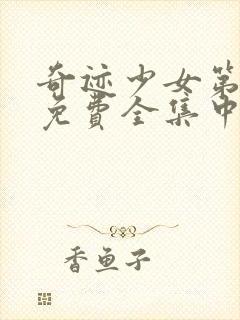 奇迹少女第
免費全集中
香鱼子